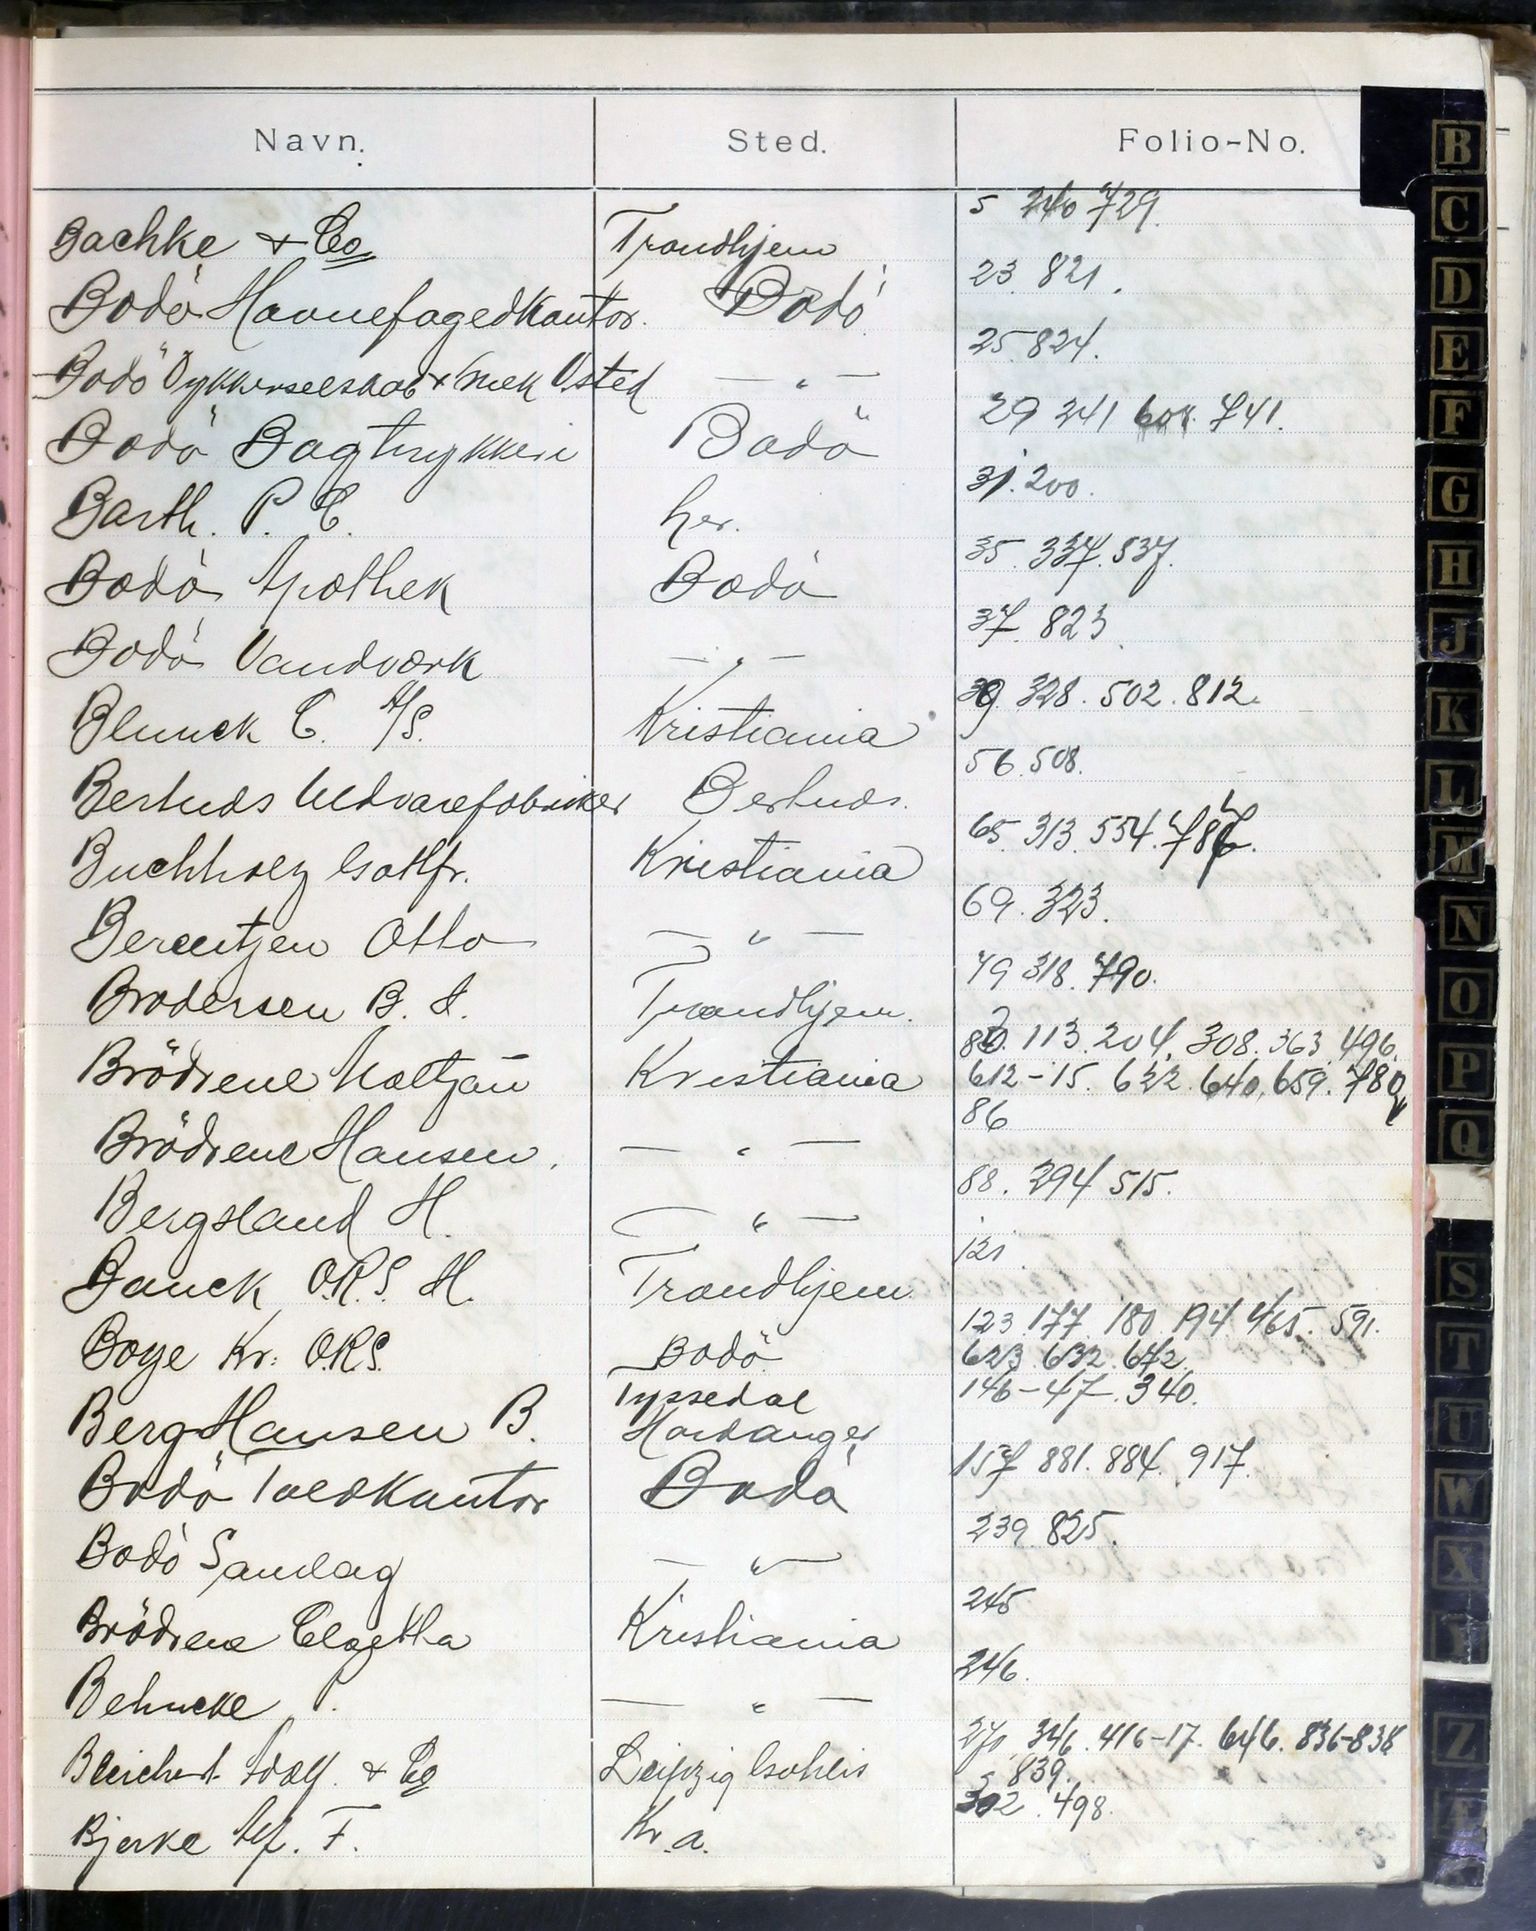 Navn. Sted. Folio-No.
Bachke & Co Trondhjem 5 240 729.
Bodö Havnefogedkontor. Bodö 23. 821.
Bodö Dykkerselskab & Mek V.sted — " — 25. 824.
Bodö Bogtrykkeri Bodö 29 241 608. 741.
Barth. P. C. her. 31. 200.
Bodö Apothek Bodö 35. 337. 537.
Bodö Vandværk — " — 37. 823
Blunck C. A/S. Kristiania 39. 328. 502. 812.
Uldvarefabriker 56. 508.
Buchholz Gottfr. Kristiania 65. 313. 554.
Berentzen Otto — " — 69. 323.
Brodersen B. Trondhjem. 79 318. 790.
Brödrene Kristiania 113. 204. 308. 363. 496.
612-15. 622. 640. 659. 780
Brödrene Hansen. — " — 86
Bergsland H. — " — 88. 294 515.
Banck O.R.S. H. Trondhjem 121
Boye Kr. O.R.S. Bodö 123. 177. 180. 194 465. 591.
623. 632. 642.
Berg-Hansen B. Tyssedal Hardanger 146-47. 340.
Bodö Toldkontor Bodö 157 881. 884. 917.
Bodö Samlag — " — 239. 825.
Brödrene Kristiania 245
Behncke P. — " — 246.
Bleichert Adolf. & Co Leipzig Gohlis 270. 346. 416-17. 646. 836-838
839.
Bjerke Alf. F. Kr.a. 302. 498.
B
C
D
E
F
G
H
J
K
L
M
N
O
P
Q
S
T
U
W
X
Y
Z